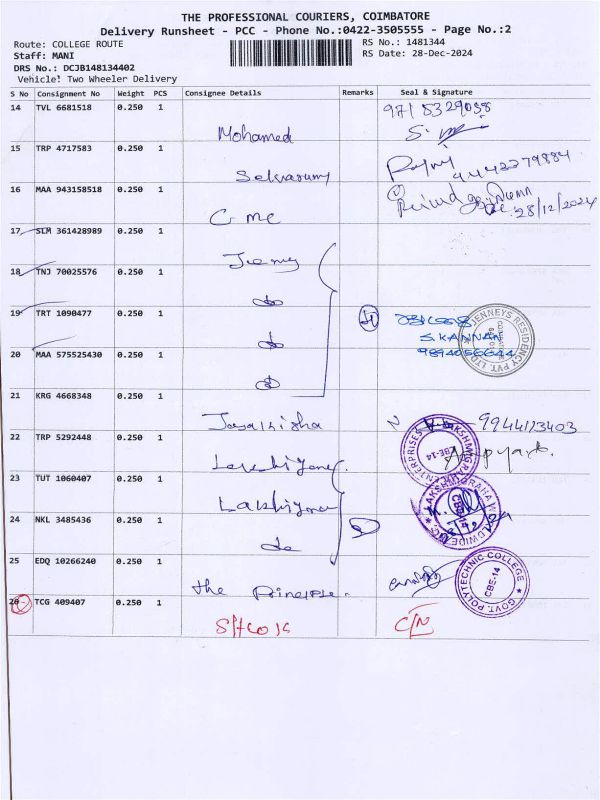 THE PROFESSIONAL COURIERS, COIMBATORE
Delivery Runsheet - PCC - Phone No.:0422-3505555 - Page No.:2
Route: COLLEGE ROUTE
RS No.: 1481344
Staff: MANI
RS Date: 28-Dec-2024
DRS No.: DCJB148134402
Vehicle! Two Wheeler Delivery
S No Consignment No Weight PCS Consignee Details Remarks Seal & Signature
14 TVL 6681518 0.250 1
Mohamed
15 TRP 4717583 0.250 1
9442279884
16 MAA 943158518 0.250 1
28/12/2024
17 SLM 361428989 0.250 1
18 TNJ 70025576 0.250 1
do
19 TRT 1090477 0.250 1
do
S.KANNAN
9894056644
JENNEYS RESIDENCY PVT. LTD.
20 MAA 575525430 0.250 1
do
21 KRG 4668348 0.250 1
9944123403
22 TRP 5292448 0.250 1
ENTERPRISES
CBE-14
23 TUT 1060407 0.250 1
24 NKL 3485436 0.250 1
do
25 EDQ 10266240 0.250 1
the Principle.
GOVT. POLYTECHNIC COLLEGE
CBE-14
26 TCG 409407 0.250 1